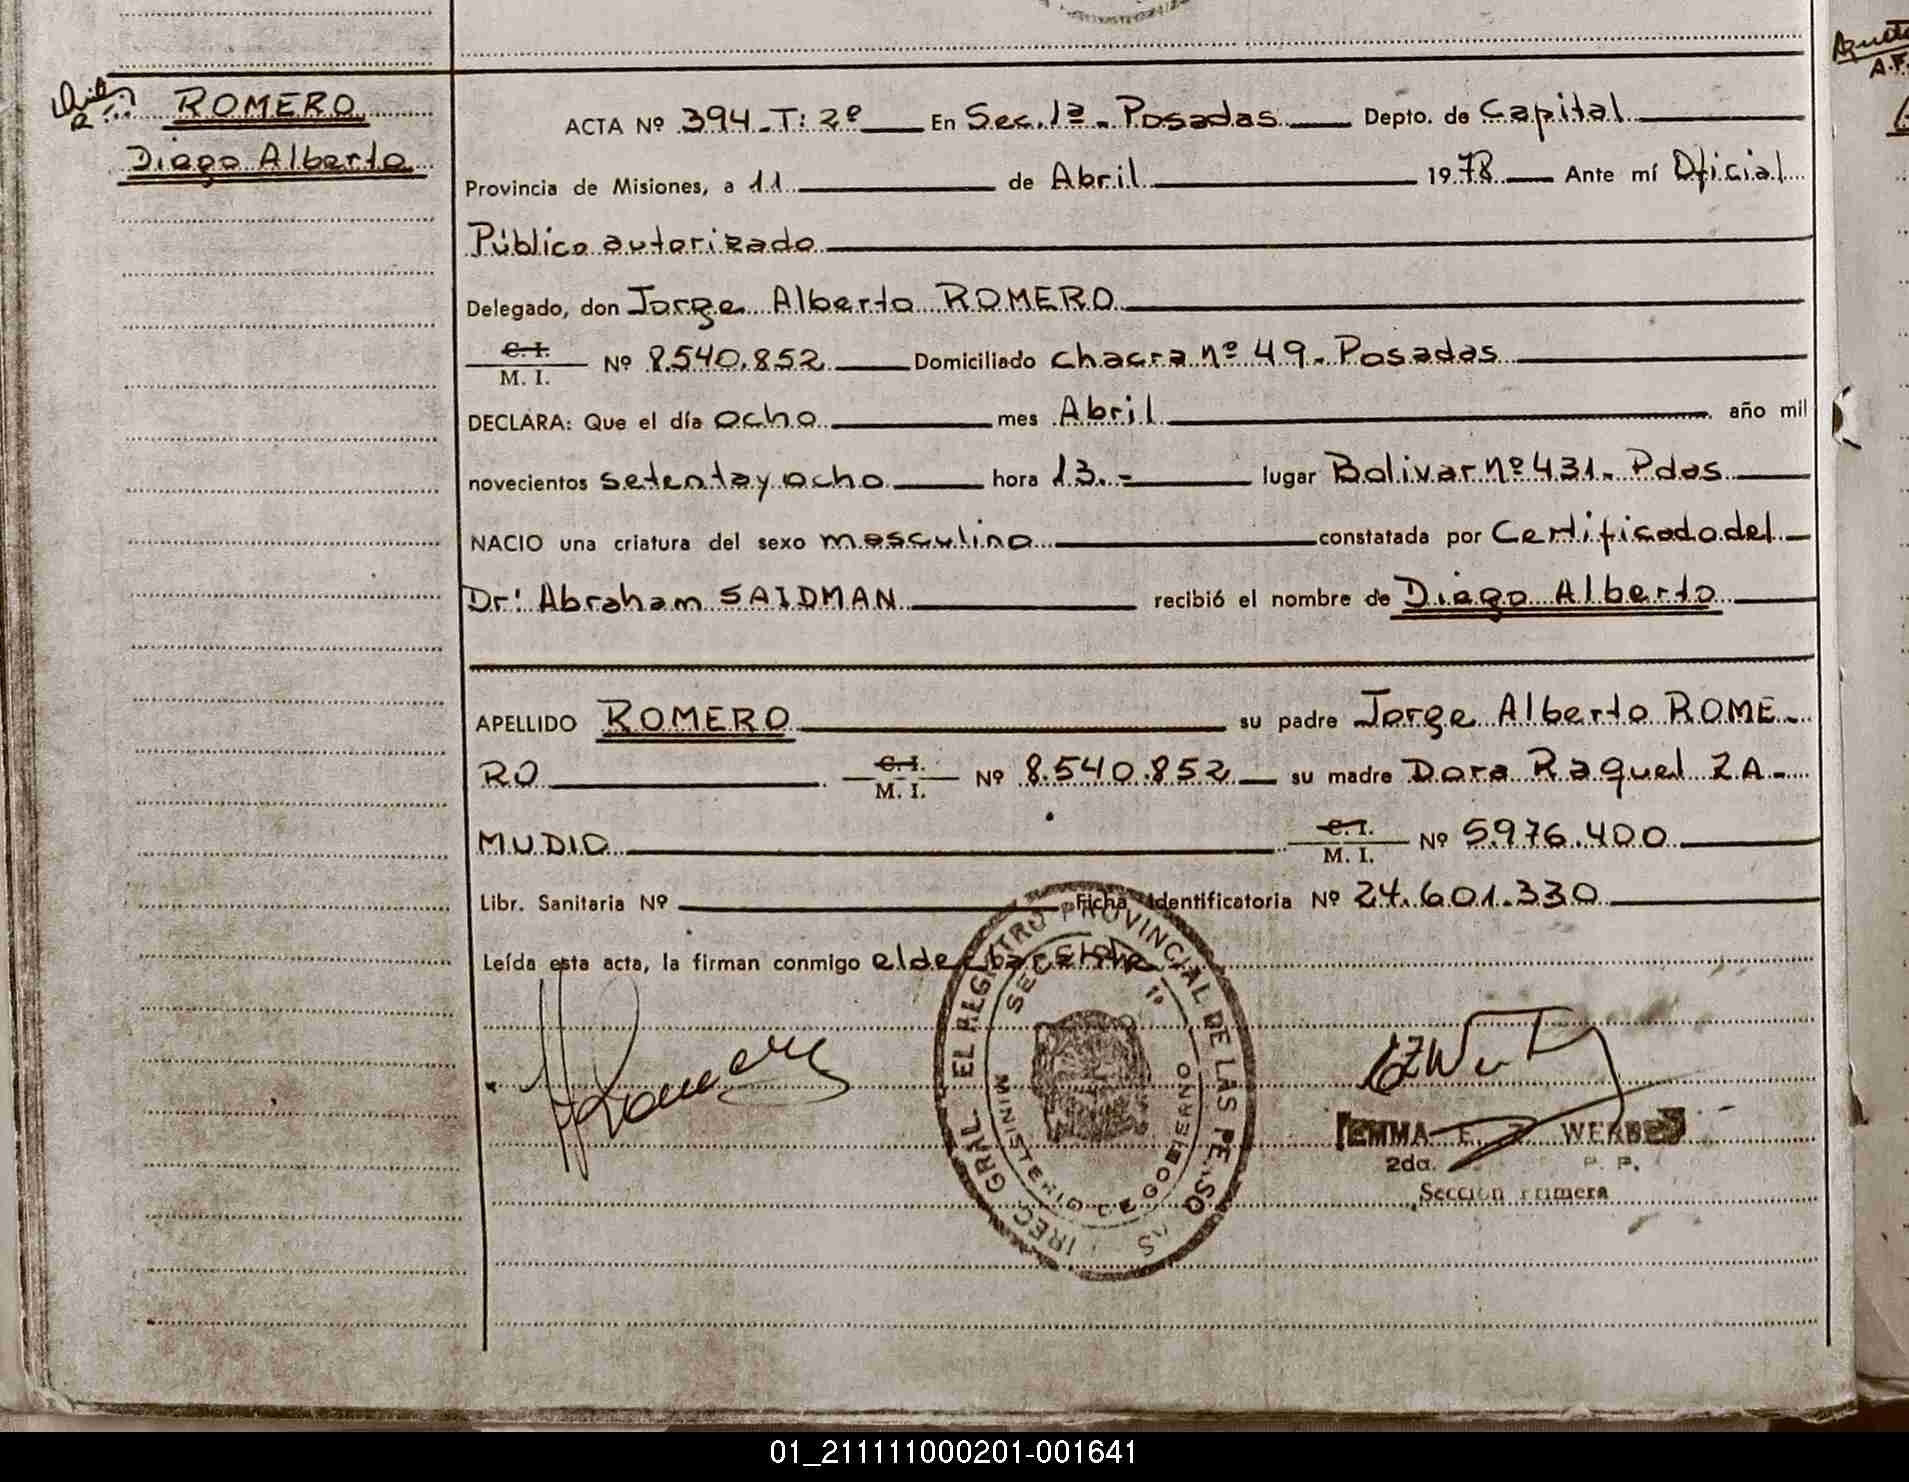 ROMERO
Diego Alberto
ACTA Nº 394 T: 2º En Sec. 1ª - Posadas Depto. de Capital
Provincia de Misiones, a 11 de Abril 1978 Ante mí Oficial
Público autorizado
Delegado, don Jorge Alberto ROMERO
C. I.
M. I. Nº 8.540.852 Domiciliado chacra nº 49 - Posadas
DECLARA: Que el día ocho mes Abril año mil
novecientos setenta y ocho hora 13.- lugar Bolivar nº 431 - Pdas
NACIO una criatura del sexo masculino constatada por Certificado del
Dr: Abraham SAIDMAN recibió el nombre de Diego Alberto
APELLIDO ROMERO su padre Jorge Alberto ROME-
RO C. I. M. I. Nº 8.540.852 su madre Dora Raquel ZA-
MUDIO C. I. M. I. Nº 5.976.400
Libr. Sanitaria Nº Ficha Identificatoria Nº 24.601.330
Leída esta acta, la firman conmigo
EL REGISTRO PROVINCIAL DE LAS PERSO
GRAL.
MINISTERIO DE GOBIERNO
EMMA E. Z. WERBES
2da. P. P.
Sección Primera
Agust
A.F.
01_211111000201-001641